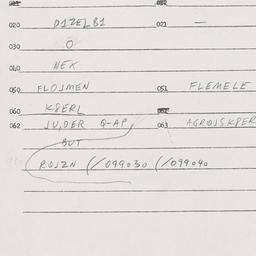 020 D1ZELB1 021 —
030 O
040 NEX
050 FLOJMEN 051 FLEMELE
060 K8ERL
062 JU,DER Q-AP 063 AGROJSK8ER
BUT
ROJZN (/099030 (/099040